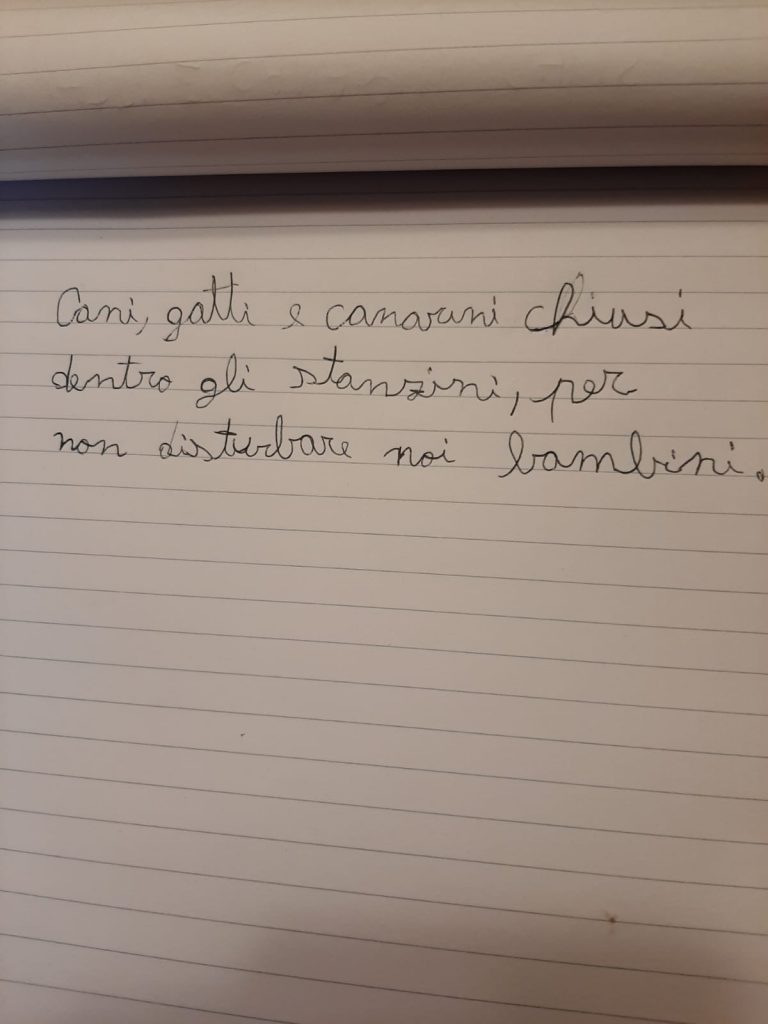 Cani, gatti e canarini chiusi
dentro gli stanzini, per
non disturbare noi bambini.